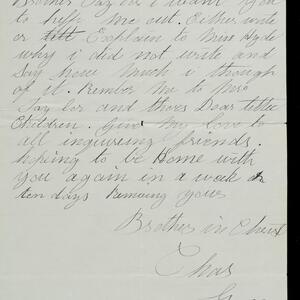 Brother Taylor I want you
to help me out. Either write
or tell Explain to Miss Hyde
why i did not write and
Say how much i though
of it. Rember Me to Mrs
Taylor and thers Dear little
Children. Give My love to
all inquiring friends.
hoping to be Home with
you again in a week or
ten days Remaing yours
Brother in Christ
Chas